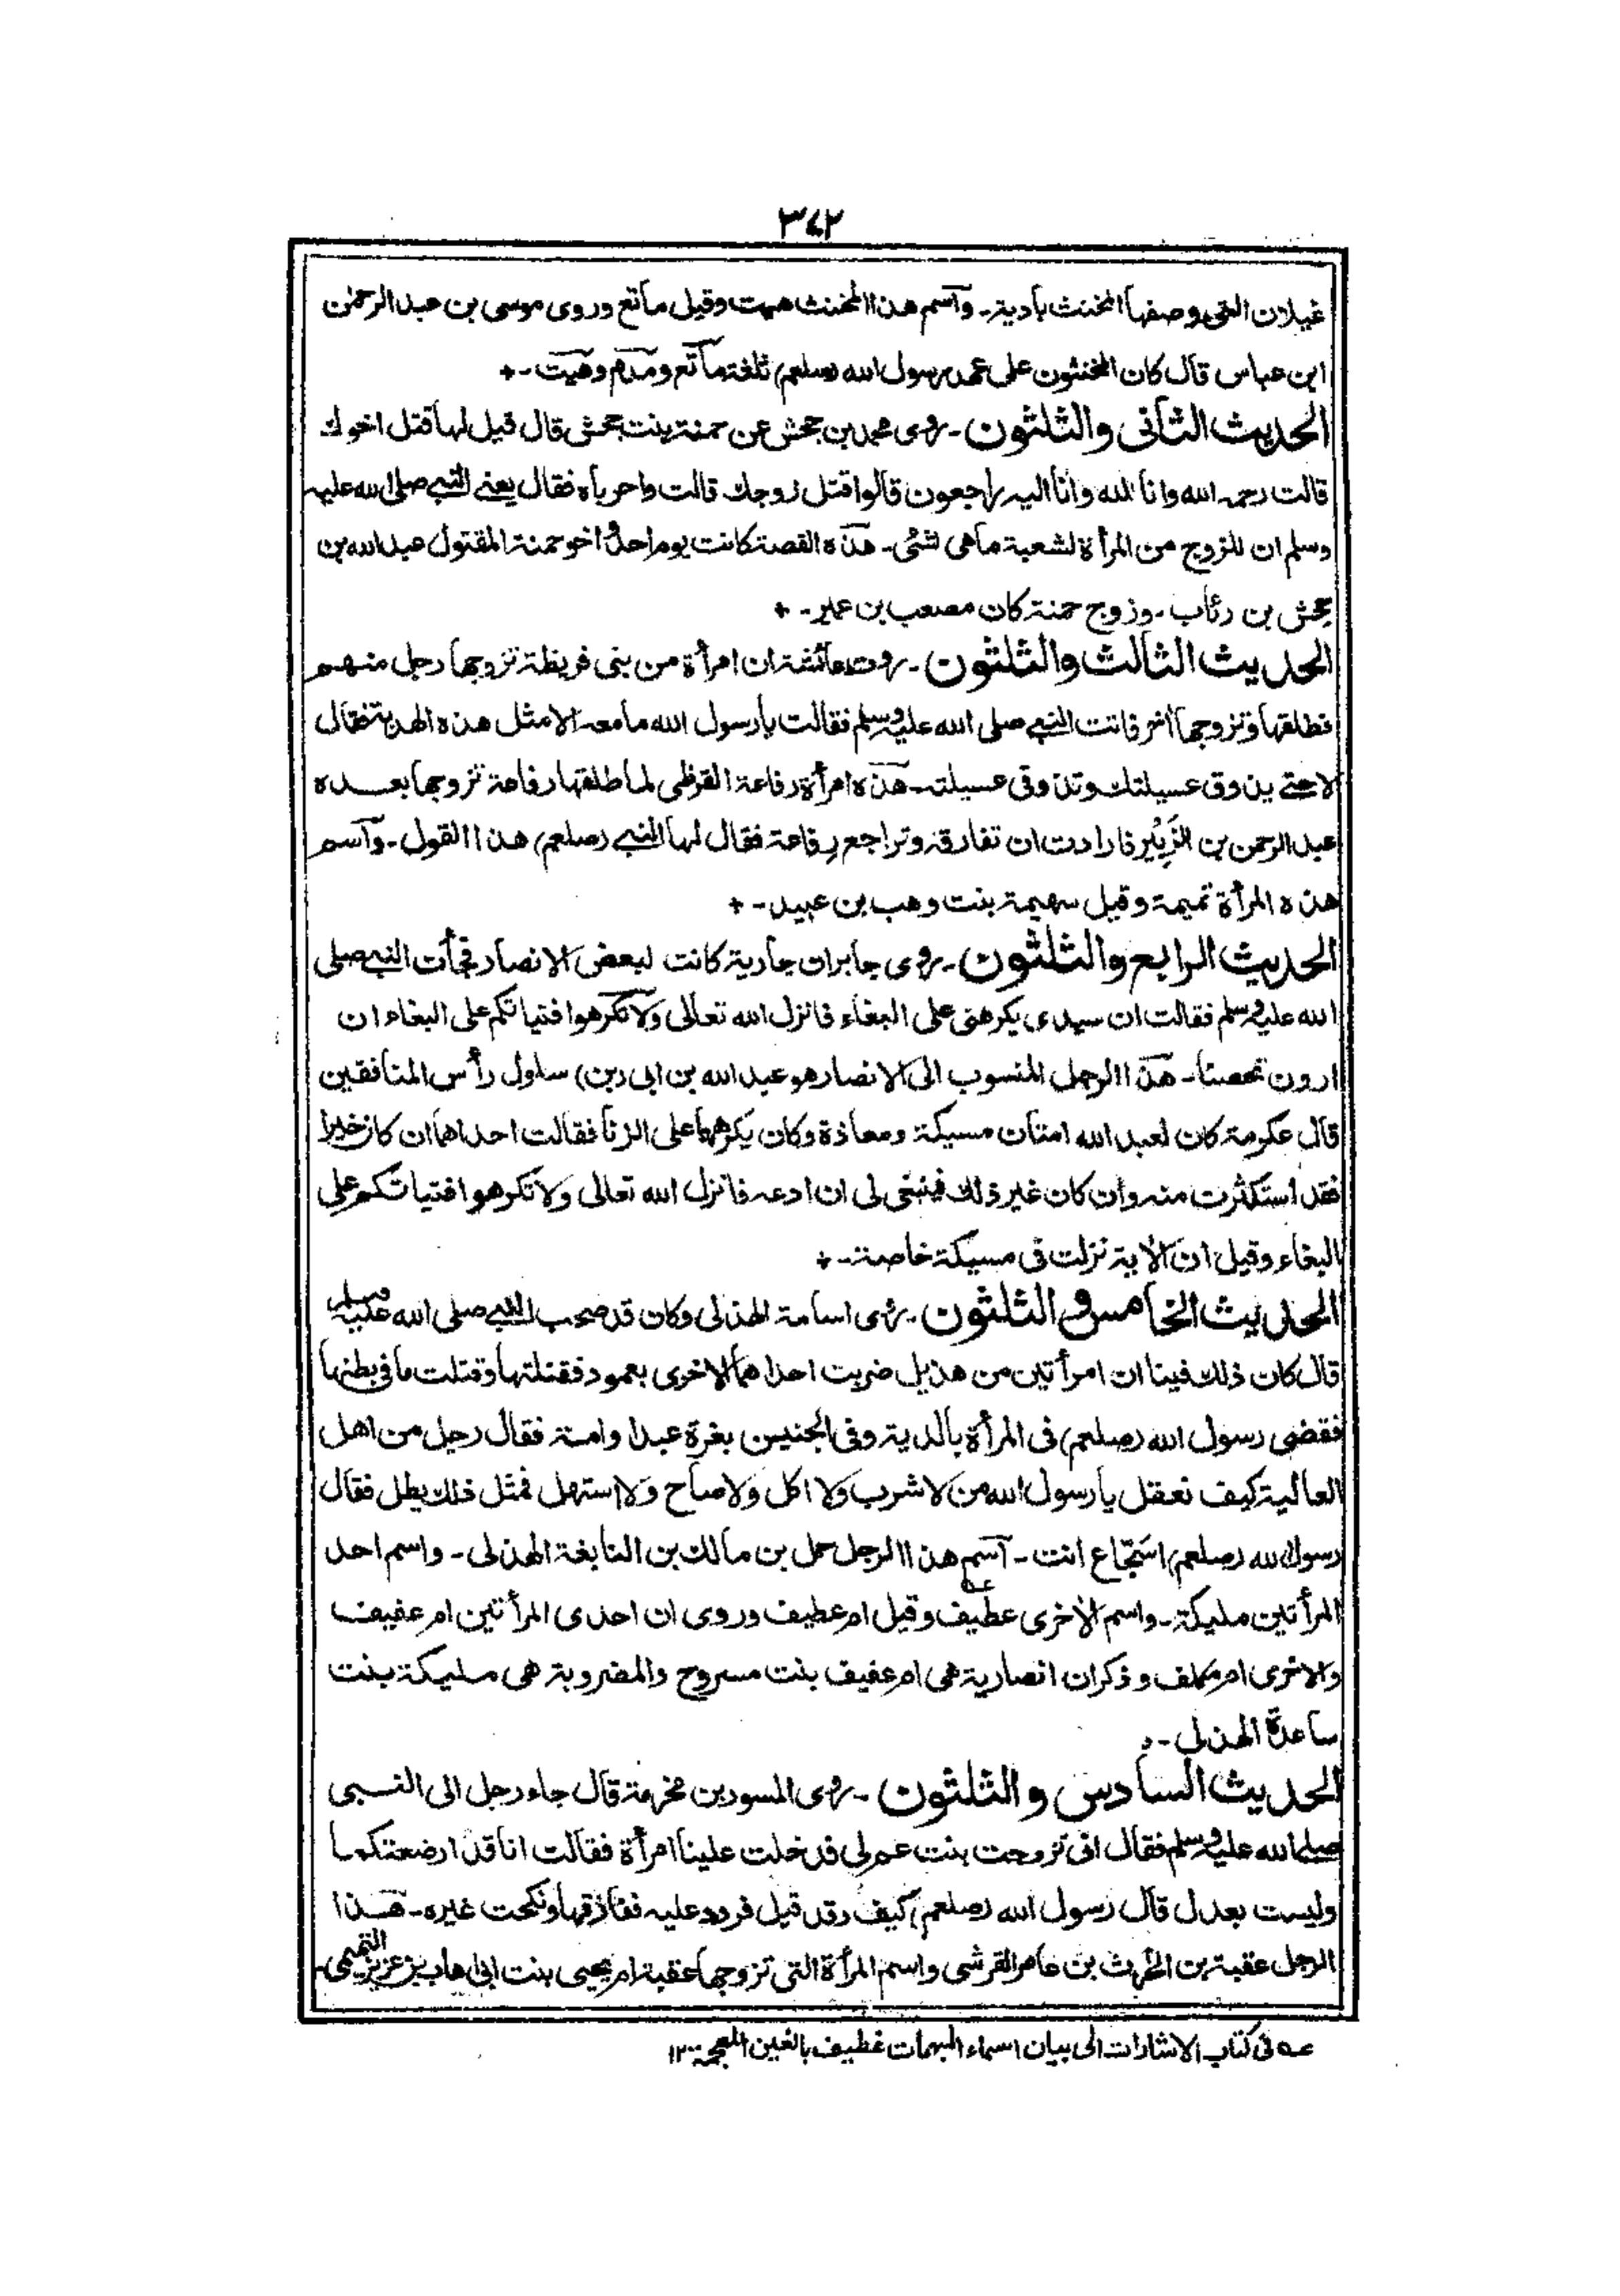 ٣٤٢
غيلان التى وصفها المخنث بادية۔ وآسم هذا المخنث هيت وقيل ماتع وروى موسى بن عبد الرحمن
ابن عباس قال كان المخنثون على عهد رسول الله (صلعم) ثلثة ماتع ومدم وهيت۔+
الحديث الثانى والثلثون۔ روى محمد بن جحش عن حمنة بنت جحش قال قيل لها قتل اخوك
قالت رحمه الله وانا لله وانا اليه راجعون قالوا قتل زوجك قالت واحرباه فقال يعنى النبى صلى الله عليه
وسلم ان للزوج من المرأة لشعبة ما هى لشئ۔ هذه القصة كانت يوم احد واخو حمنة المقتول عبد الله بن
جحش بن رئاب۔ وزوج حمنة كان مصعب بن عمير۔+
الحديث الثالث والثلثون۔ روت عائشة ان امرأة من بنى قريظة تزوجها رجل منهم
فطلقها وتزوجها آخر فاتت النبى صلى الله عليه وسلم فقالت يا رسول الله ما معه الا مثل هذه الهدبة فقال
لا حتى يذوق عسيلتك وتذوقى عسيلته۔ هذه امرأة رفاعة القرظى لما طلقها رفاعة تزوجها بعده
عبد الرحمن بن الزَبِيْر فارادت ان تفارقه وتراجع رفاعة فقال لها النبى (صلعم) هذا القول۔ وآسم
هذه المرأة تميمة وقيل سهيمة بنت وهب بن عبيد۔+
الحديث الرابع والثلثون۔ روى جابر ان جارية كانت لبعض الانصار فجأت النبى صلى
الله عليه وسلم فقالت ان سيدى يكرهنى على البغاء فانزل الله تعالى ولا تكرهوا فتياتكم على البغاء ان
اردن تحصنا۔ هذا الرجل المنسوب الى الانصار هو عبد الله بن ابى (بن) سلول رأس المنافقين
قال عكرمة كان لعبد الله امتان مسيكة ومعاذة وكان يكرههما على الزنا فقالت احداهما ان كان خيرا
فقد استكثرت منه وان كان غير ذلك فينبغى لى ان ادعه فانزل الله تعالى ولا تكرهوا فتياتكم على
البغاء وقيل ان الاية نزلت فى مسيكة خاصة۔+
الحديث الخامس و الثلثون۔ روى اسامة الهذلى وكان قد صحب النبى صلى الله عليه وسلم
قال كان ذلك فينا ان امرأتين من هذيل ضربت احداهما الاخرى بعمود فقتلتها وقتلت ما فى بطنها
فقضى رسول الله (صلعم) فى المرأة بالدية وفى الجنين بغرة عبد او امة فقال رجل من اهل
العالية كيف نعقل يا رسول الله من لا شرب ولا اكل ولا صاح ولا استهل فمثل ذلك يطل فقال
رسول الله (صلعم) اسَجّاع انت۔ آسم هذا الرجل حمل بن مالك بن النابغة الهذلى۔ واسم احد
المرأتين مليكة۔ واسم الاخرى عطيف وقيل ام عطيف وروى ان احدى المرأتين ام عفيف
والاخرى ام مكلف وذكر ان انصارية هى ام عفيف بنت مسروح والمضروبة هى مليكة بنت
ساعدة الهذلى۔
الحديث السادس و الثلثون۔ روى المسور بن مخرمة قال جاء رجل الى النبى
صلى الله عليه وسلم فقال انى تزوجت بنت عم لى فدخلت علينا امرأة فقالت انا قد ارضعتكما
وليست بعدل قال رسول الله (صلعم) كيف وقد قيل فردد عليه ففارقها ونكحت غيره۔ هذا
الرجل عقبة بن الحرث بن عامر القرشى واسم المرأة التى تزوجها عقبة ام يحيى بنت ابى اهاب بن عزيز التميمى۔
عه فى كتاب الاشارات الى بيان اسماء المبهمات غطيف بالغين المعجمة ١٢